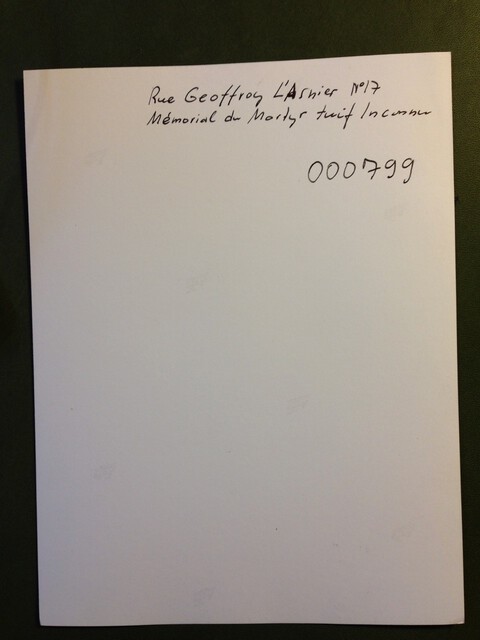 Rue Geoffroy L'Asnier N°17
Mémorial du Martyr Juif Inconnu
000799